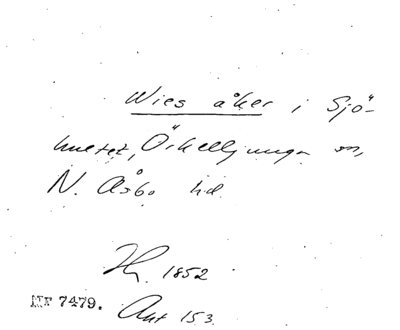 Wies åker i Sjö-
hultet, Örkelljunga sn,
N. Åsbo hd
1852
MF 7479. Ant 153